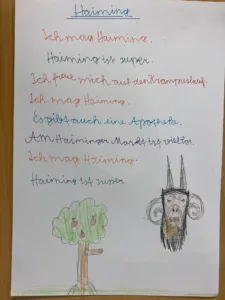 Haiming
Ich mag Haiming.
Haiming ist super.
Ich freue mich auf den Krampuslauf.
Ich mag Haiming.
Es gibt auch eine Apotheke.
AM Haiminger Markt ist viel los.
Ich mag Haiming.
Haiming ist super